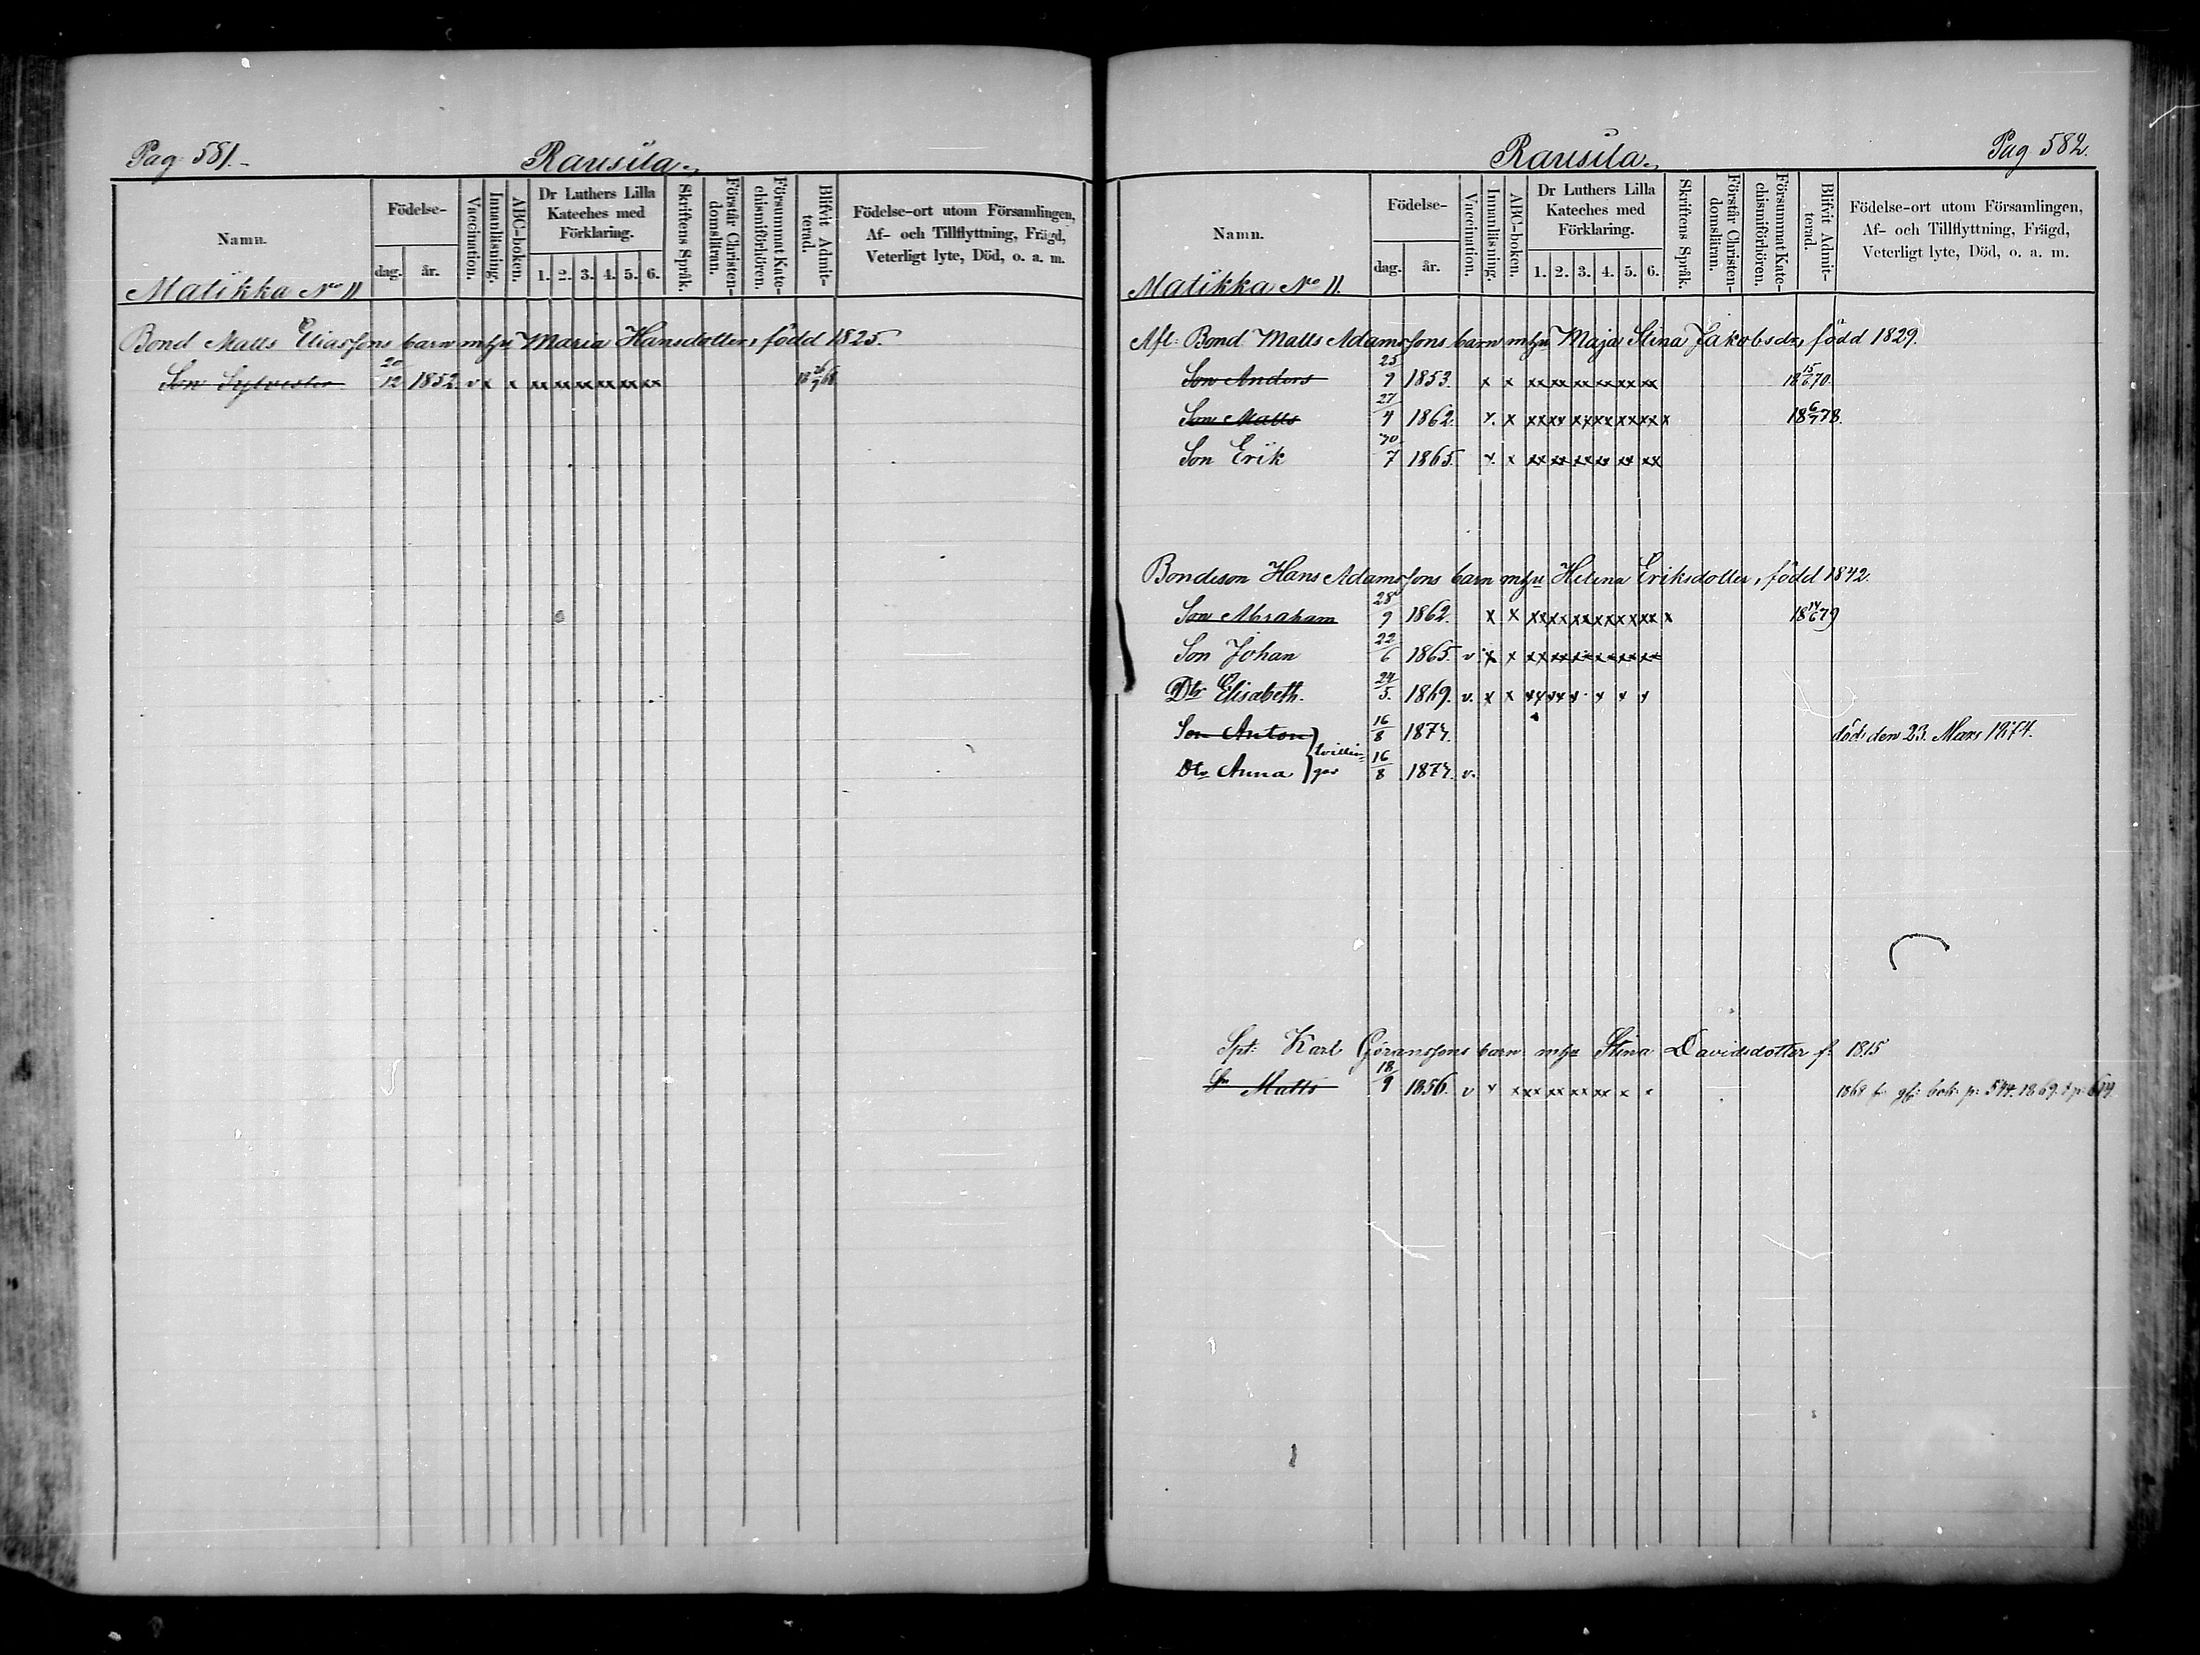 Pag 581.
Rausila.
Namn.
Födelse-
dag.
år.
Vaccination.
Innanläsning.
ABC-boken.
Dr Luthers Lilla
Kateches med
Förklaring.
1. 2. 3. 4. 5. 6.
Skriftens Språk.
Förstår Christen-
domsläran.
Försummat Kate-
chismiförhören.
Blifvit Admit-
terad.
Födelse-ort utom Församlingen,
Af- och Tillflyttning, Frägd,
Veterligt lyte, Död, o. a. m.
Matikka No 11
Bond Matts Eliassons barn mhu Maria Hansdotter, född 1825.
Son Sylvester 20/12 1852. v x x xx xx xx xx xx xx
Rausila.
Pag 582.
Namn.
Födelse-
dag.
år.
Vaccination.
Innanläsning.
ABC-boken.
Dr Luthers Lilla
Kateches med
Förklaring.
1. 2. 3. 4. 5. 6.
Skriftens Språk.
Förstår Christen-
domsläran.
Försummat Kate-
chismiförhören.
Blifvit Admit-
terad.
Födelse-ort utom Församlingen,
Af- och Tillflyttning, Frägd,
Veterligt lyte, Död, o. a. m.
Matikka No 11.
Afl: Bond Matts Adamssons barn mhu Maja Stina Jakobsdr, född 1829.
Son Anders 25/9 1853. x x xx xx xx xx xx xx 18 15/6 70.
Son Matts 27/4 1862. x x xx xx xx xx xx xx x 18 6/7 78.
Son Erik 30/7 1865. x x xx xx xx xx xx xx
Bondeson Hans Adamssons barn mhu Helena Eriksdotter, född 1842.
Son Abraham 28/9 1862. x x xx xx xx xx xx xx x 18 14/6 79
Son Johan 22/6 1865. v x x xx xx xx xx xx xx
Dtr Elisabeth. 24/5. 1869. v. x x xx xx x x x x
Son Anton 16/8 1873. död den 23 Mars 1874.
tvillin-
Dtr Anna gar 16/8 1873. v.
Spt: Karl Göranssons barn mhu Stina Davidsdotter f. 1815
Sn Matts 18/9 1856. v x x xx xx xx xx x x 1868 fr. gl: bok: p: 544. 1869. t p: